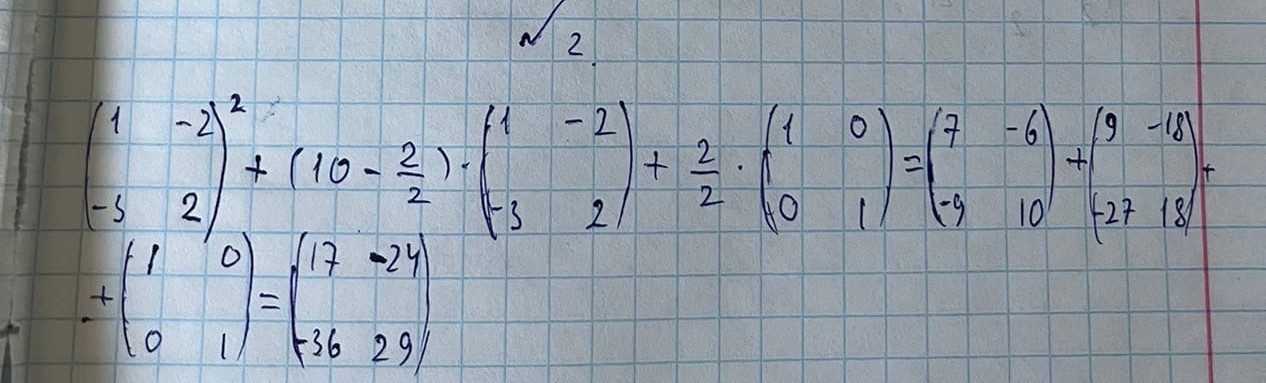 √ 2.
(1 -2 -3 2)² + (10 - 2/2) · (1 -2 -3 2) + 2/2 · (1 0 0 1) = (7 -6 -9 10) + (9 -18 -27 18) +
+ (1 0 0 1) = (17 -24 -36 29)